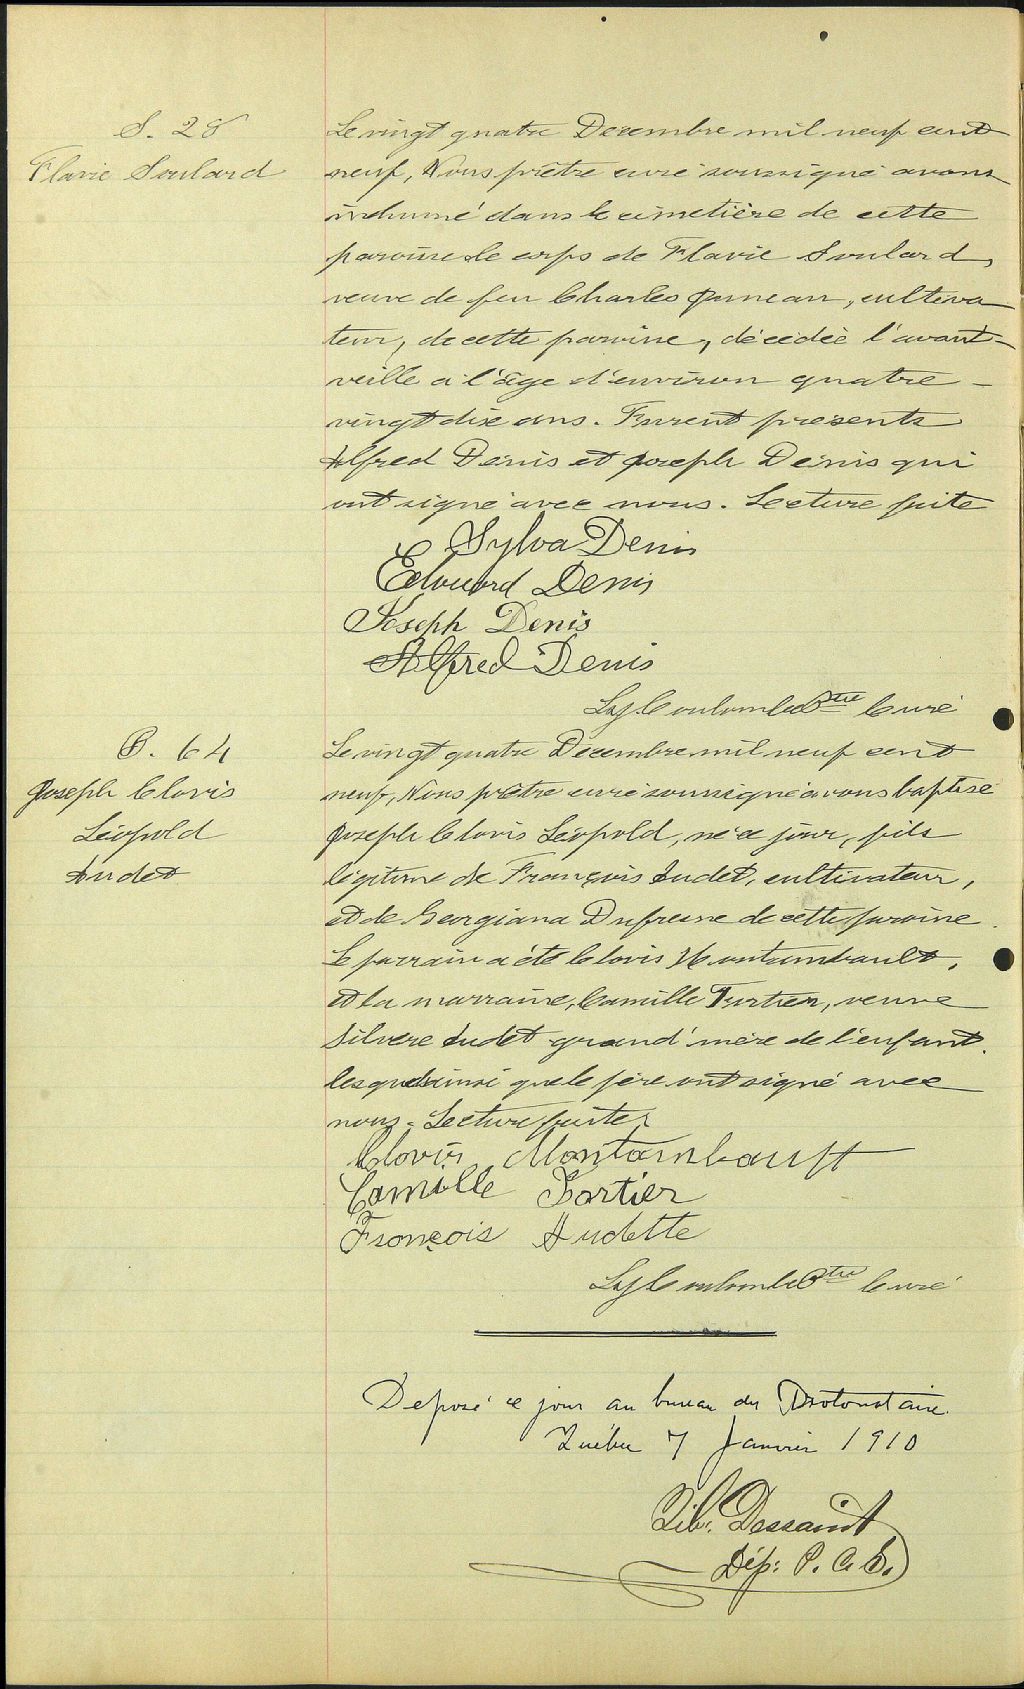 S. 28
Flavie Soulard
Le vingt quatre Decembre mil neuf cent
neuf, Nous prêtre curé soussigné avons
inhumé dans le cimetière de cette
paroisse le corps de Flavie Soulard,
veuve de feu Charles Juneau, cultiva
teur, de cette paroisse, décédée l'avant-
veille à l'âge d'environ quatre-
vingt dix ans. Furent présents
Alfred Denis et Joseph Denis qui
ont signé avec nous. Lecture faite
Sylva Denis
Edouard Denis
Joseph Denis
Alfred Denis
Ptre Curé
B. 64
Joseph Clovis
Léopold
Audet
Le vingt quatre Decembre mil neuf cent
neuf, Nous prêtre curé soussigné avons baptisé
Joseph Clovis Léopold, né ce jour, fils
légitime de François Audet, cultivateur,
et de Georgiana Dufresne de cette paroisse.
Le parrain a été Clovis Montambault,
et la marraine, Camille Fortier, veuve
Silvère Audet grand'mère de l'enfant.
lesquels ainsi que le père ont signé avec
nous. Lecture faite
Clovis Montambault
Camille Fortier
François Audette
Ptre Curé
Déposé ce jour au bureau du Protonotaire.
Québec 7 Janvier 1910
Dessaint
Dép: P. C. S.